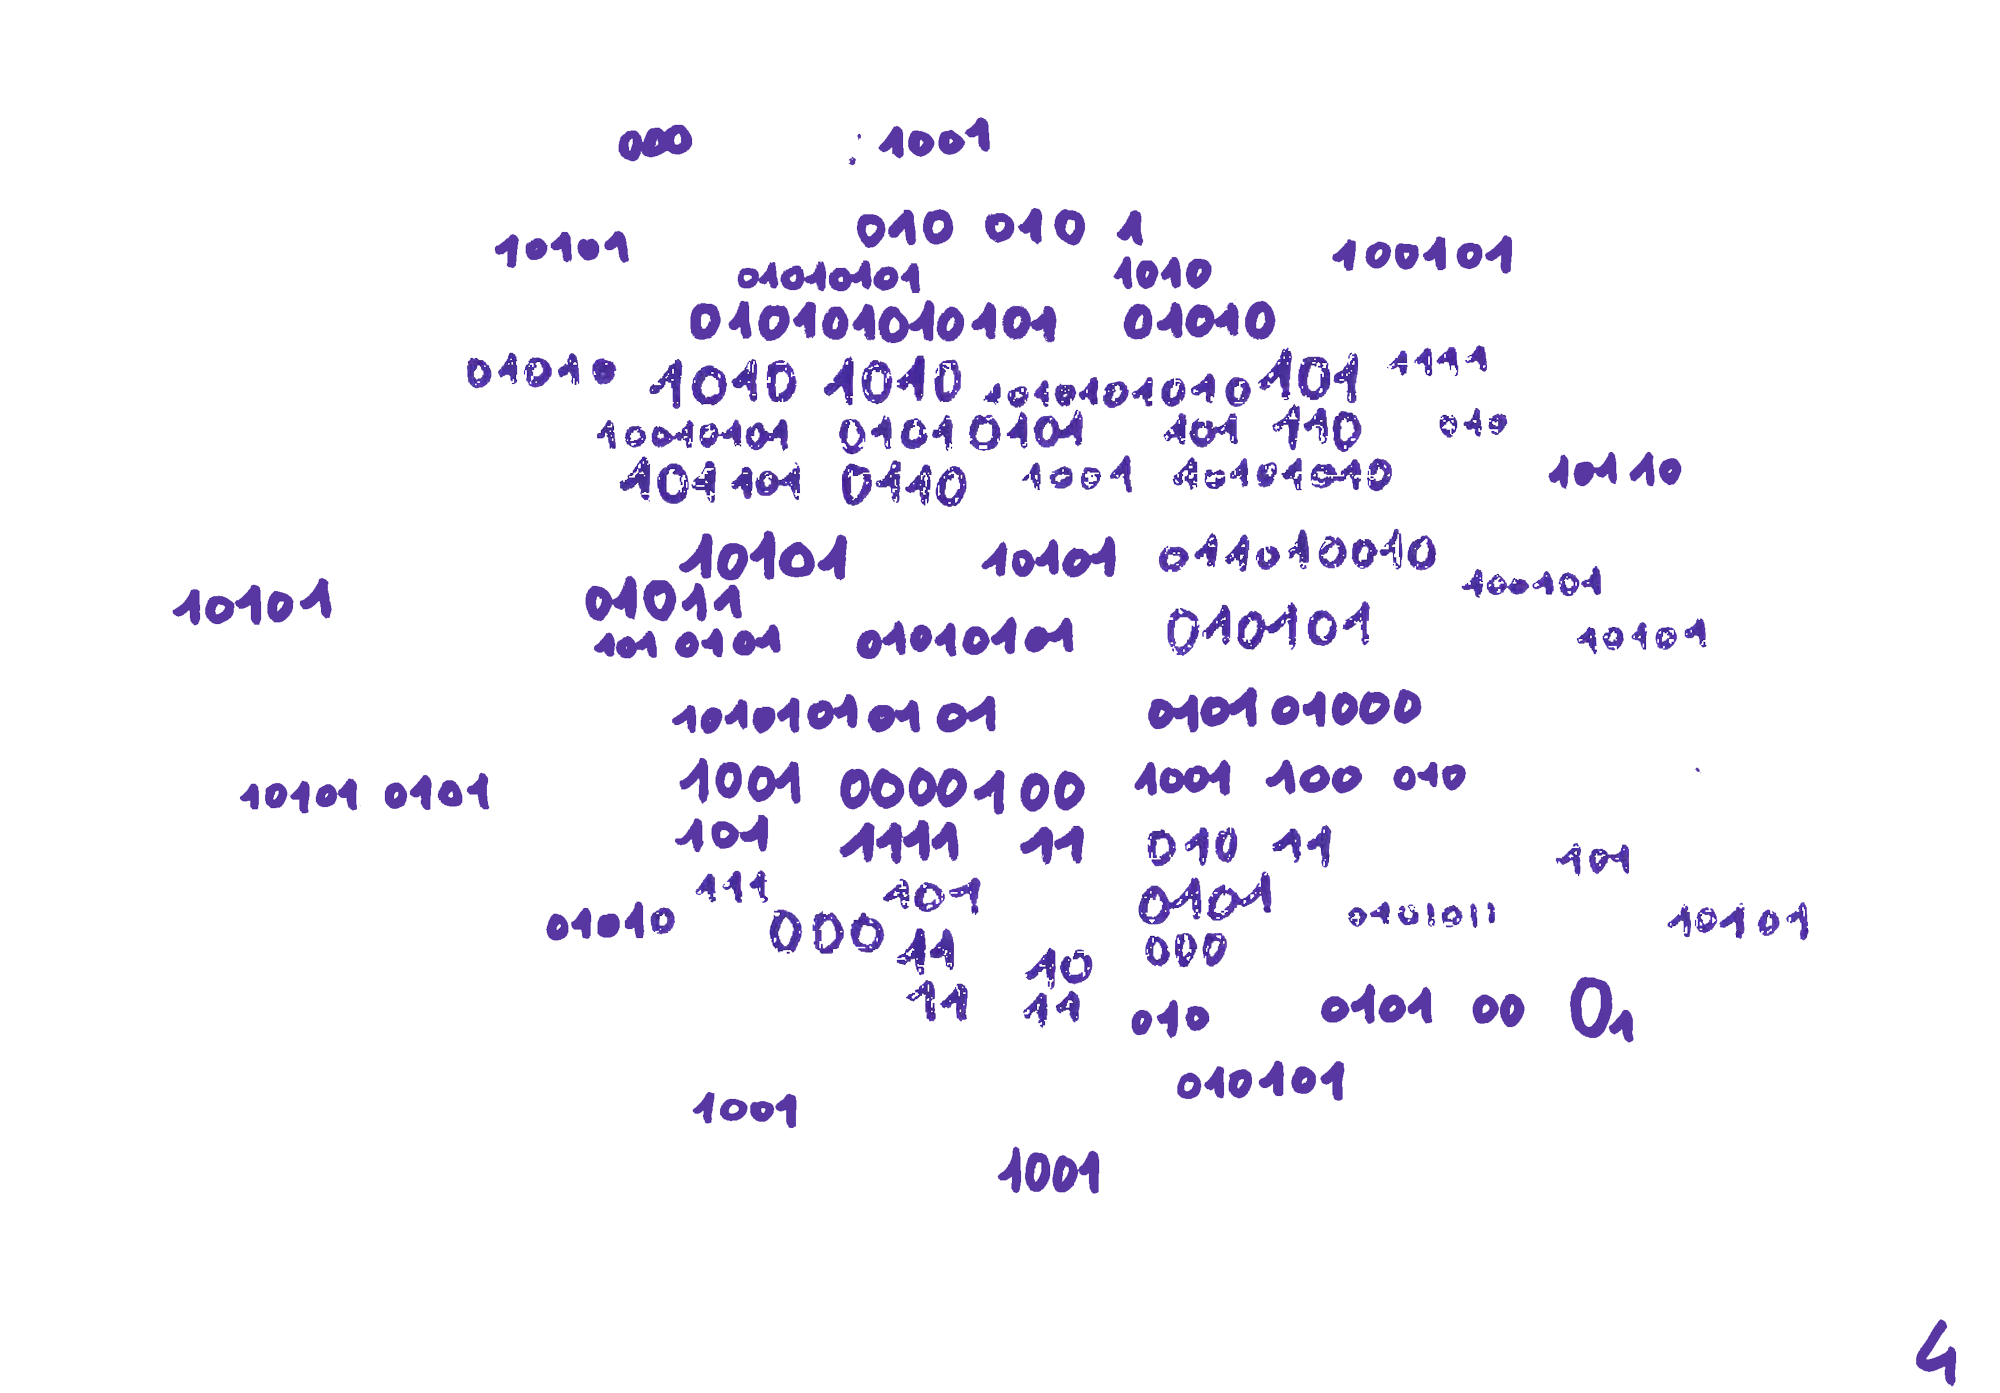 000 1001
010 010 1
10101 100101
01010101 1010
010101010101 01010
01010 1010 1010 1010101010 101 1111
10010101 01010101 101 110 010
101101 0110 1001 10101010 10110
10101 10101 011010010
10101 01011 100101
101 0101 01010101 010101 10101
10101010101 01 010101000
10101 0101 1001 0000100 1001 100 010
101 1111 11 010 11 101
111 101 0101
01010 000 0101011 10101
11 10 000
11 11 010 0101 00 01
010101
1001
1001
4